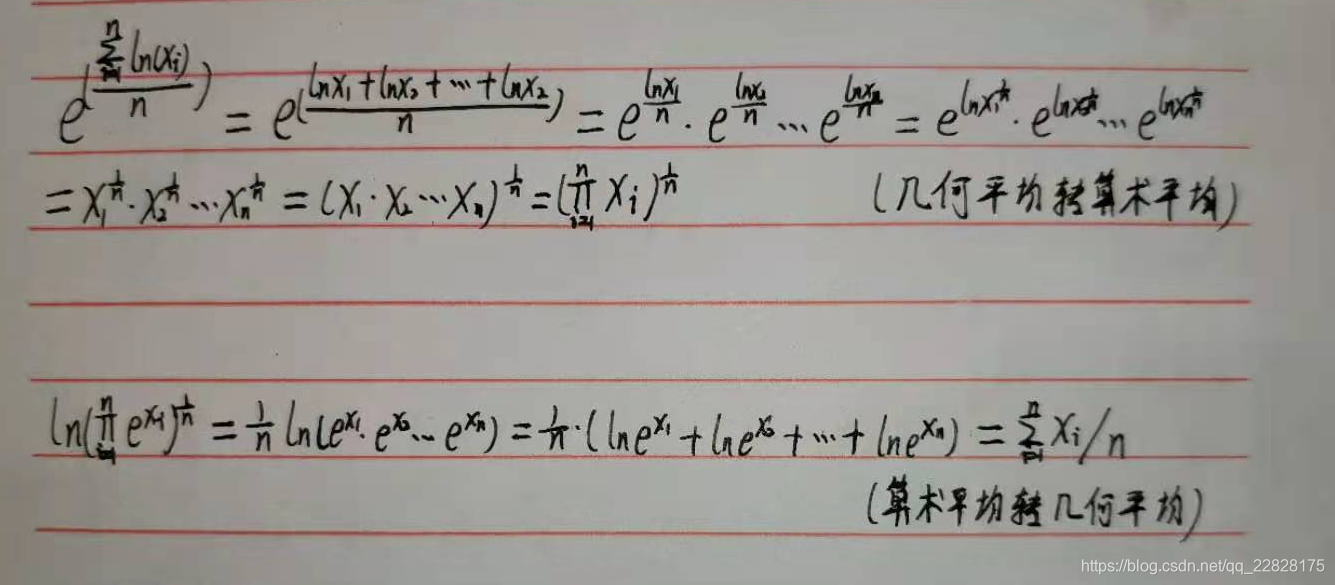 e^{(\frac{\sum_{i=1}^{n} ln(x_i)}{n})} = e^{(\frac{lnx_1+lnx_2+⋯+lnx_2}{n})} = e^{\frac{lnx_1}{n}}·e^{\frac{lnx_2}{n}}⋯e^{\frac{lnx_n}{n}} = e^{lnx_1^{\frac{1}{n}}}·e^{lnx_2^{\frac{1}{n}}}⋯e^{lnx_n^{\frac{1}{n}}}
= x_1^{\frac{1}{n}}·x_2^{\frac{1}{n}}⋯x_n^{\frac{1}{n}} = (x_1·x_2⋯x_n)^{\frac{1}{n}} = (\prod_{i=1}^{n} x_i)^{\frac{1}{n}} (几何平均转算术平均)
ln(\prod_{i=1}^{n} e^{x_i})^{\frac{1}{n}} = \frac{1}{n} ln(e^{x_1}·e^{x_2}⋯e^{x_n}) = \frac{1}{n}·(lne^{x_1}+lne^{x_2}+⋯+lne^{x_n}) = \sum_{i=1}^{n} x_i/n
(算术平均转几何平均)
https://blog.csdn.net/qq_22828175